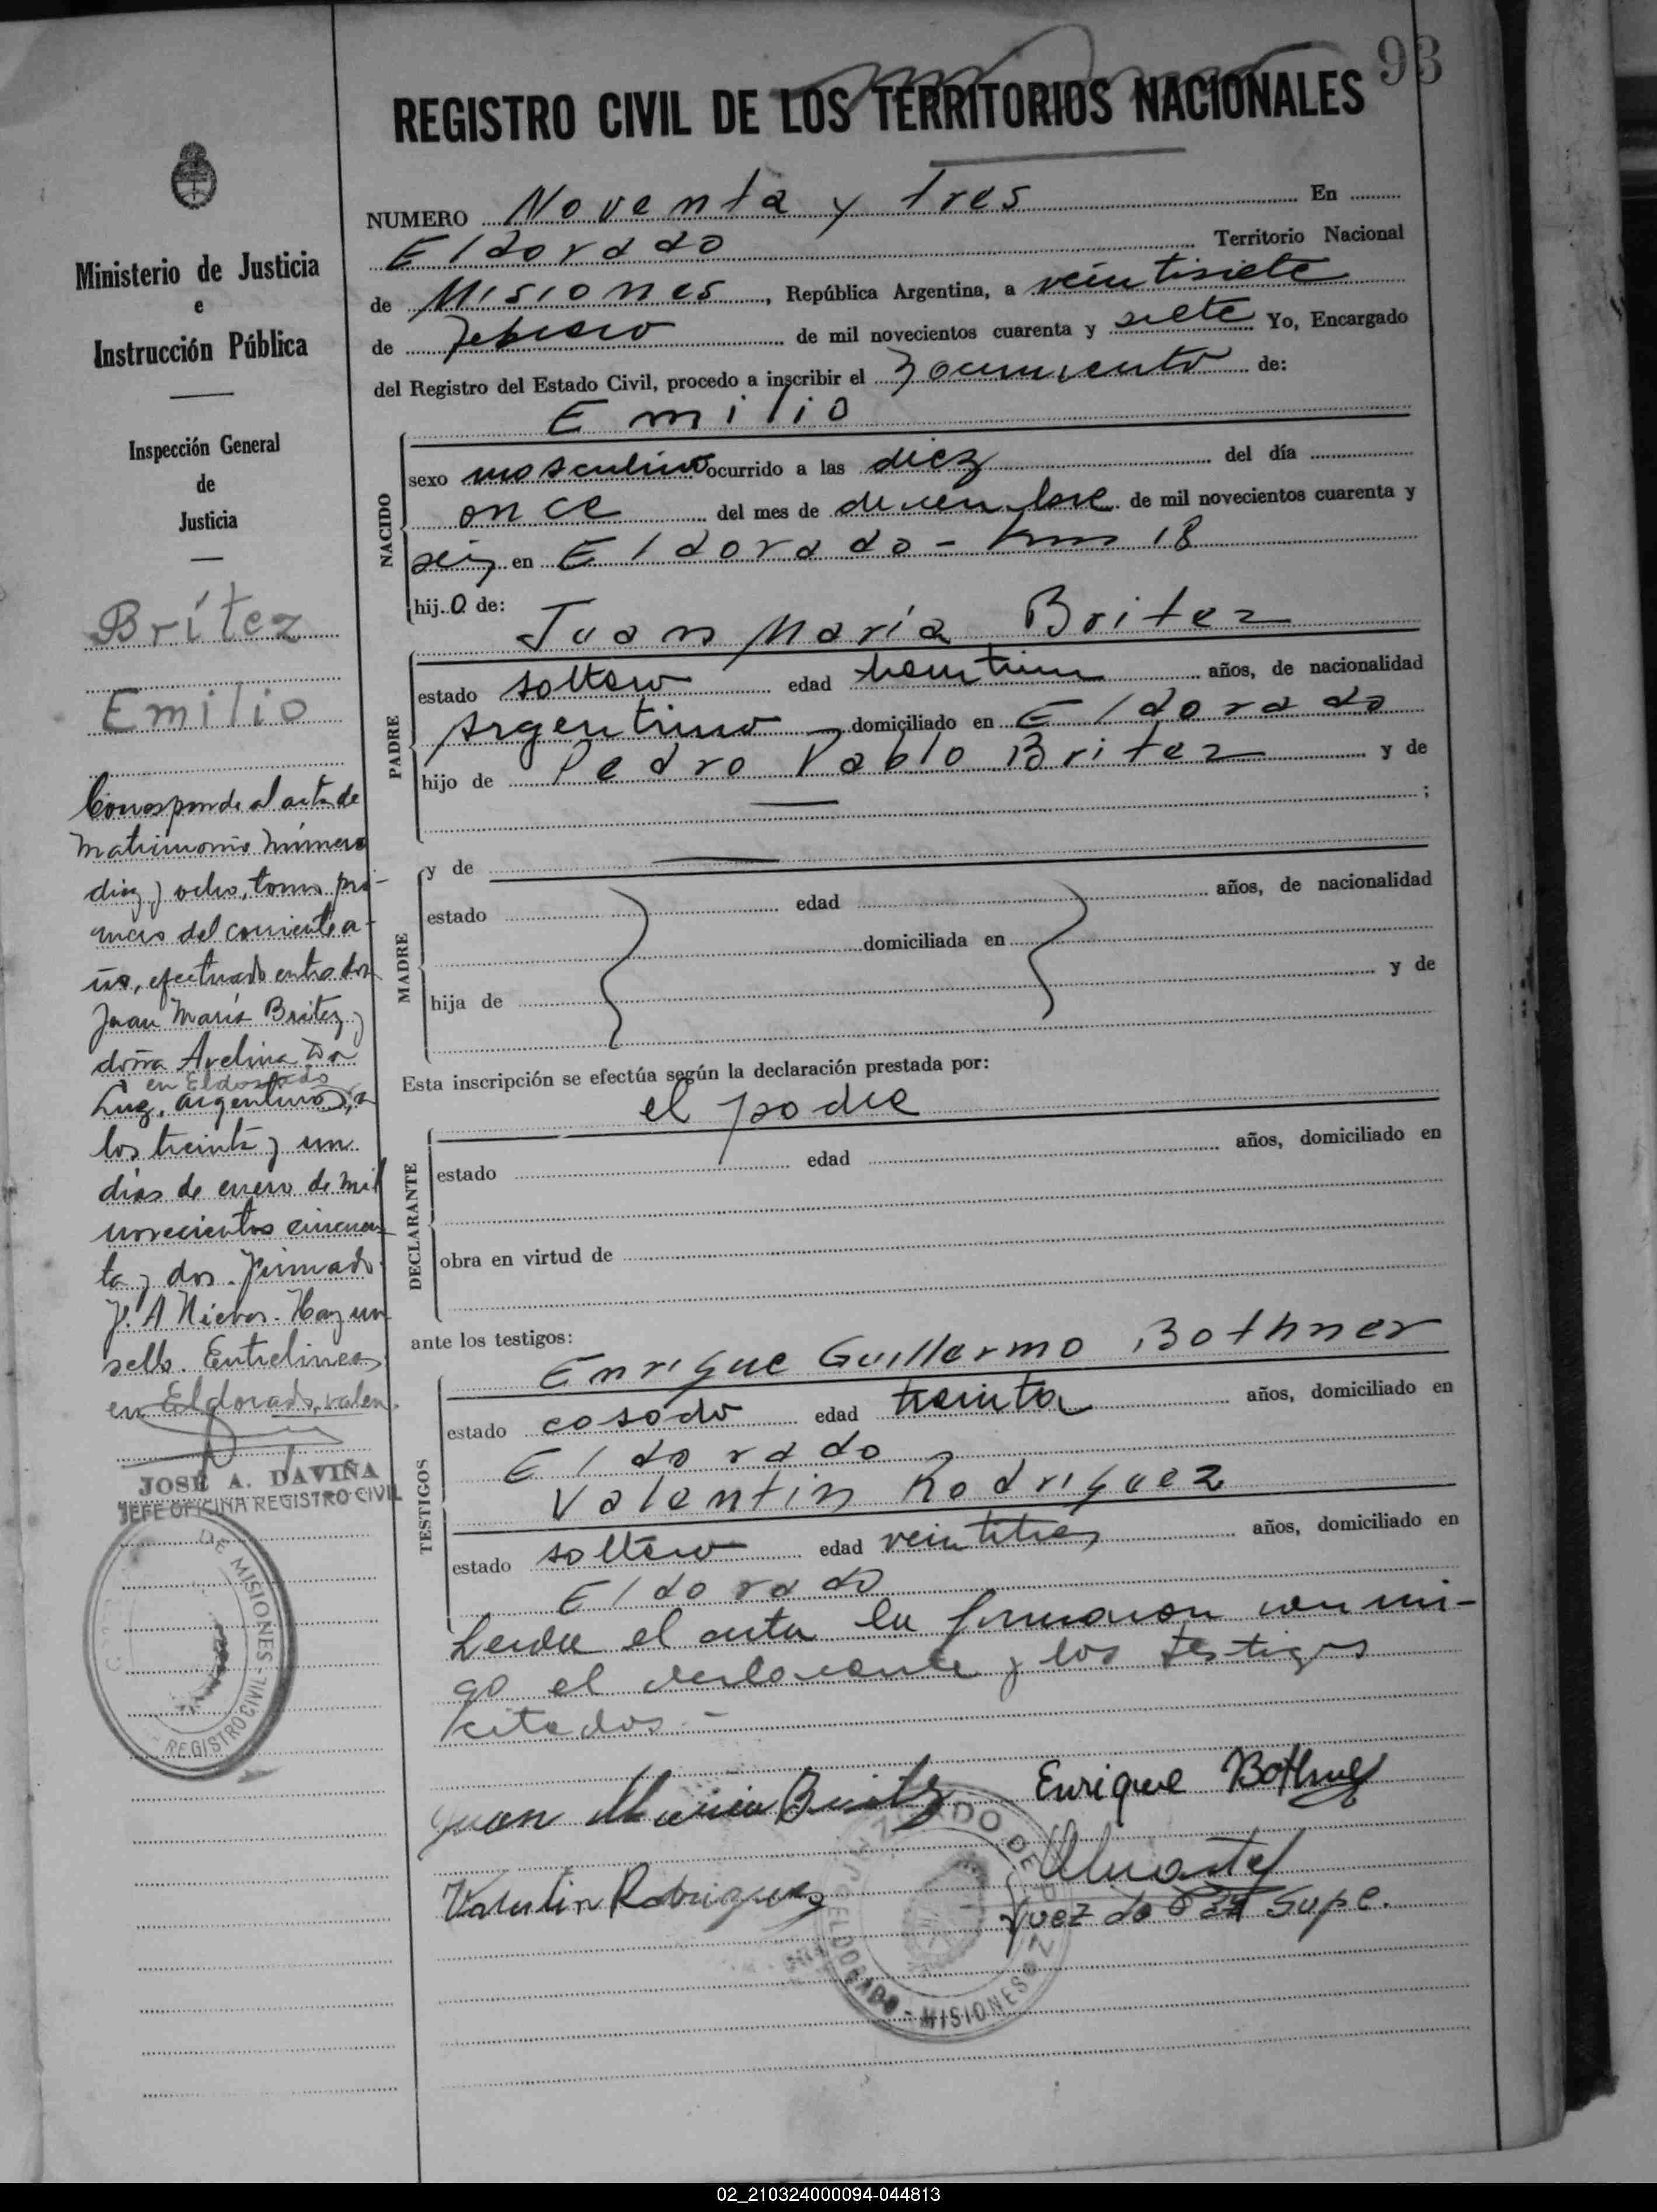 93
REGISTRO CIVIL DE LOS TERRITORIOS NACIONALES
Ministerio de Justicia
e
Instrucción Pública
Inspección General
de
Justicia
Brítez
Emilio
Corresponde al acta de
matrimonio número
diez y ocho, tomo pri-
mero del corriente a-
ño, efectuado entre don
Juan María Britez y
doña Avelina Da
en Eldorado
Luz, argentinos, a
los treinta y un
días de enero de mil
novecientos cincuen-
ta y dos. Firmado
J. A Nieves. Hay un
sello. Entrelineas
en Eldorado, valen.
JOSE A. DAVIÑA
JEFE OFICINA REGISTRO CIVIL
DE MISIONES - REGISTRO CIVIL -
NUMERO Noventa y tres En
Eldorado Territorio Nacional
de Misiones, República Argentina, a veintisiete
de febrero de mil novecientos cuarenta y siete Yo, Encargado
del Registro del Estado Civil, procedo a inscribir el nacimiento de:
Emilio
NACIDO
sexo masculino ocurrido a las diez del día
once del mes de diciembre de mil novecientos cuarenta y
seis en Eldorado - km 18
hijo de:
Juan María Britez
PADRE
estado soltero edad años, de nacionalidad
Argentino domiciliado en Eldorado
hijo de Pedro Pablo Britez y de
;
y de
MADRE
estado edad años, de nacionalidad
domiciliada en
hija de y de
Esta inscripción se efectúa según la declaración prestada por:
el padre
DECLARANTE
estado edad años, domiciliado en
obra en virtud de
ante los testigos:
Enrique Guillermo Bothner
TESTIGOS
estado casado edad treinta años, domiciliado en
Eldorado
Valentin Rodriguez
estado soltero edad veintitres años, domiciliado en
Eldorado
Leida el acta la firmaron conmi-
go el declarante y los testigos
citados.-
Juan Maria Britez Enrique Bothner
Valentin Rodriguez
Juez de Paz Supe.
JUZGADO DE PAZ
ELDORADO - MISIONES
02_210324000094-044813